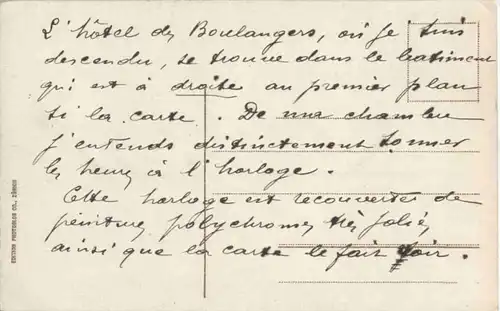 L'hôtel des Boulangers, où je suis
descendu, se trouve dans le batiment
qui est à droite au premier plan
la carte. De ma chambre
j'entends distinctement sonner
les heures à l'horloge.
Cette horloge est recouverte de
peintures polychromes très jolies,
ainsi que la carte le fait voir.
EDITION PHOTOGLOB CO., ZÜRICH